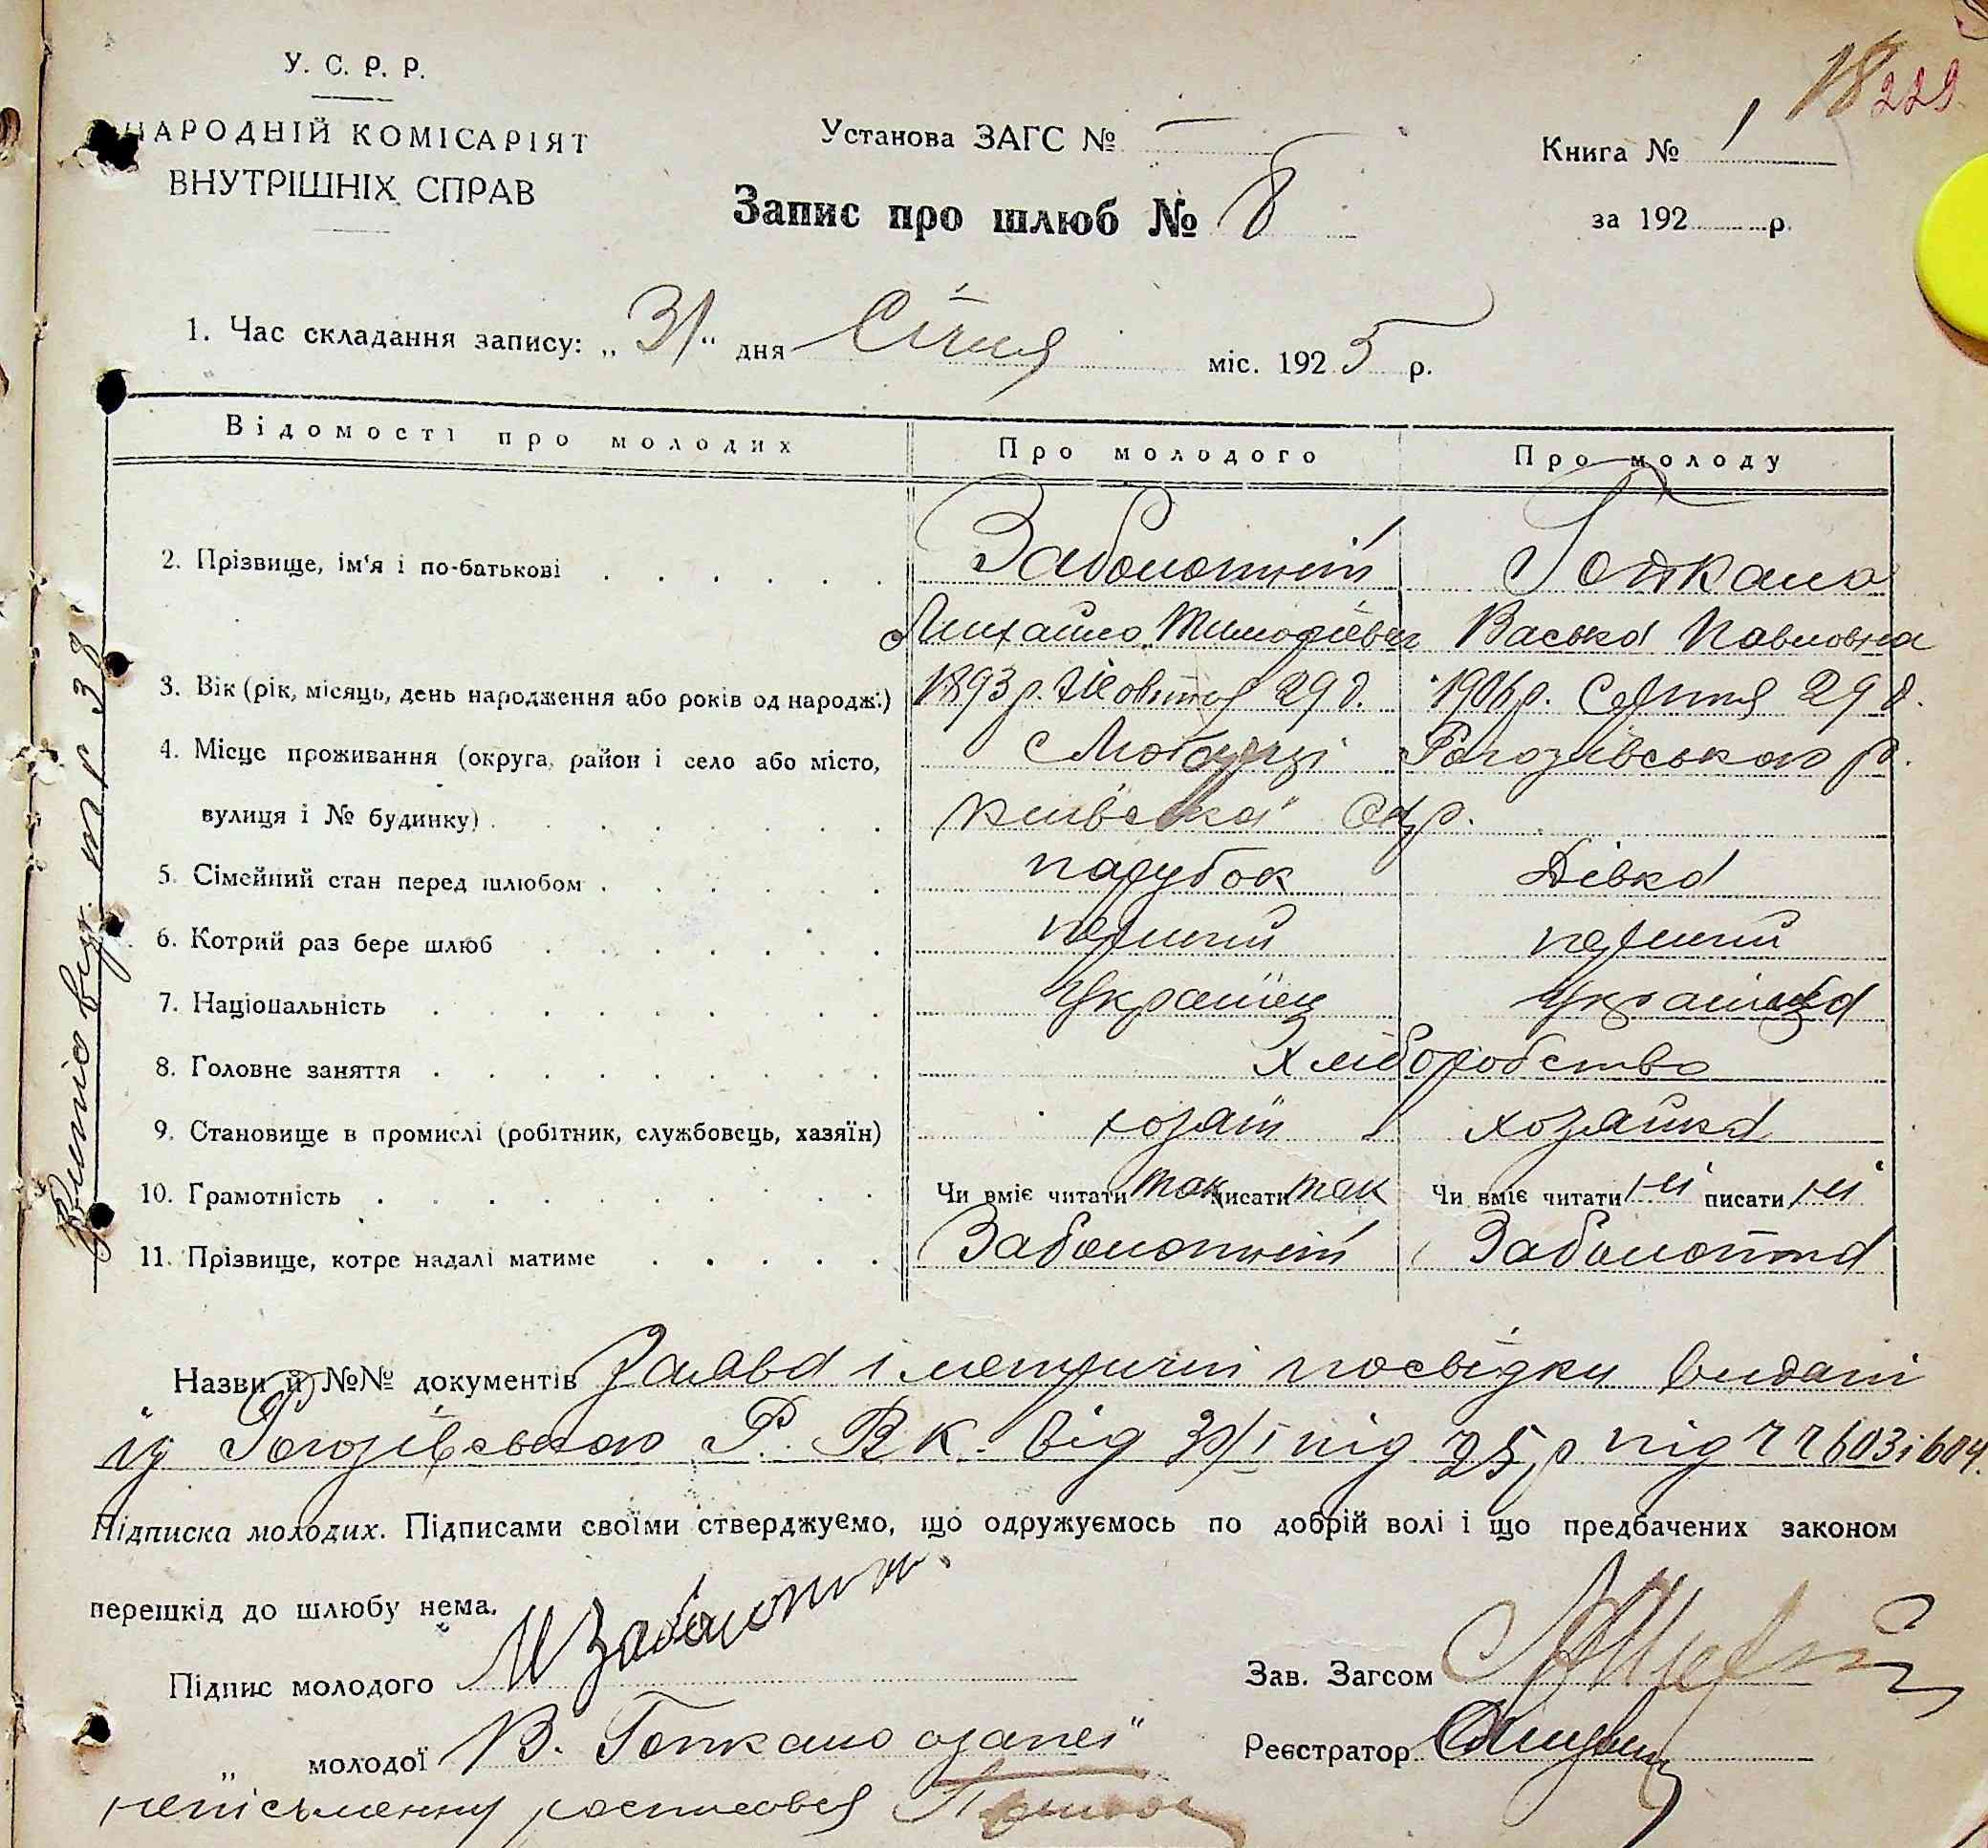 18 229
У. С. Р. Р.
НАРОДНІЙ КОМІСАРІЯТ
ВНУТРІШНІХ СПРАВ
Установа ЗАГС № —
Книга № 1
Запис про шлюб № 8
за 192 р.
1. Час складання запису: „31" дня Січня міс. 1925 р.
Відомості про молодих Про молодого Про молоду
2. Прізвище, ім'я і по-батькові Заболотній
Михайло Тимофієвич Васька Павловна
3. Вік (рік, місяць, день народження або років од народж.) 1893 р. Жовтня 29 д. 1906 р. Серпня 29 д.
4. Місце проживання (округа, район і село або місто, с Рогозівського р.
вулиця і № будинку) Київської Окр.
5. Сімейний стан перед шлюбом парубок Дівка
6. Котрий раз бере шлюб перший перший
7. Національність Українець Українка
8. Головне заняття Хліборобство
9. Становище в промислі (робітник, службовець, хазяїн) хозяїн хозяйка
10. Грамотність Чи вміє читати так писати так Чи вміє читати ні писати ні
11. Прізвище, котре надалі матиме Заболотній Заболотна
Назви й №№ документів Заява і метричні посвідки видані
Рогозівського Р. В К. від 30/I під 25 р під ч ч 603 і 604.
Підписка молодих. Підписами своїми стверджуємо, що одружуємось по добрій волі і що предбачених законом
перешкід до шлюбу нема.
Підпис молодого М Заболотн
Зав. Загсом
„ молодої В.
Реєстратор
неписьменну росписався